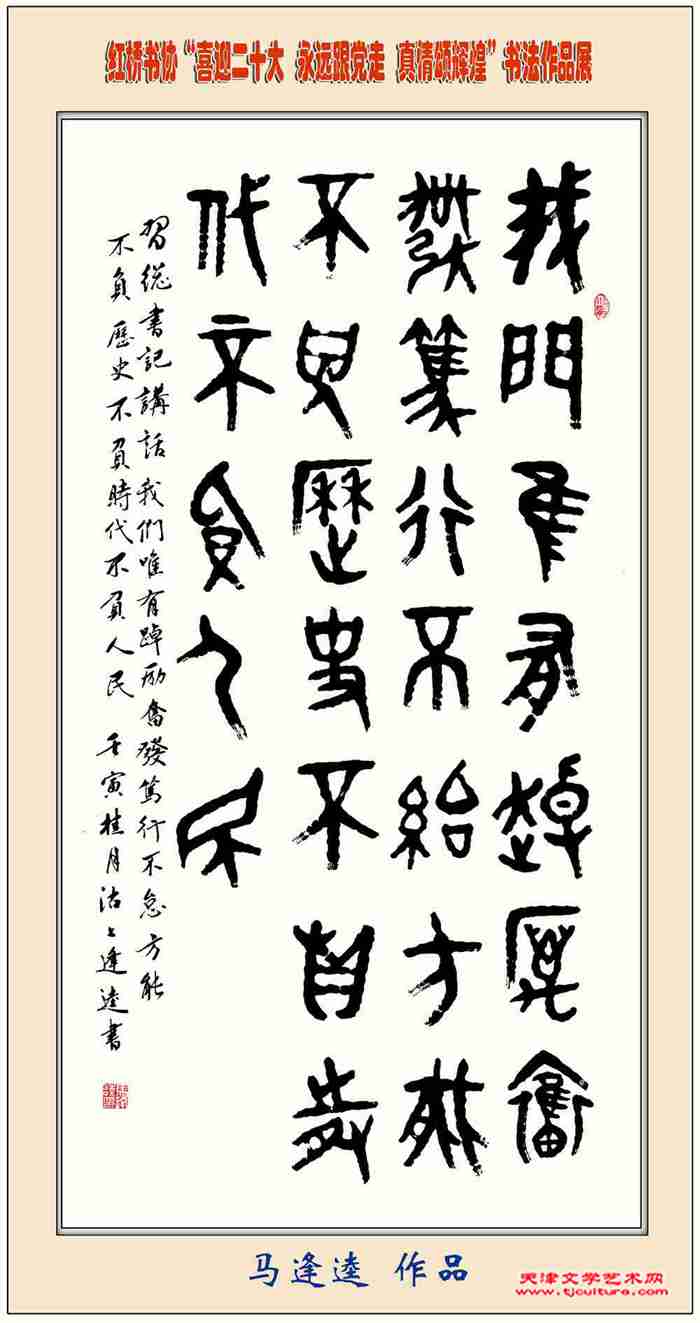 红桥书协“喜迎二十大 永远跟党走 真情颂辉煌”书法作品展
我門隹有踔厲奮
發篤行不紿方能
不負歷史不負時
代不負人民
習総書記講話我們唯有踔励奮發篤行不怠方能
不負歷史不負時代不負人民 壬寅桂月沽上逢逵書
马逢逵 作品
天津文学艺术网
www.tjculture.com